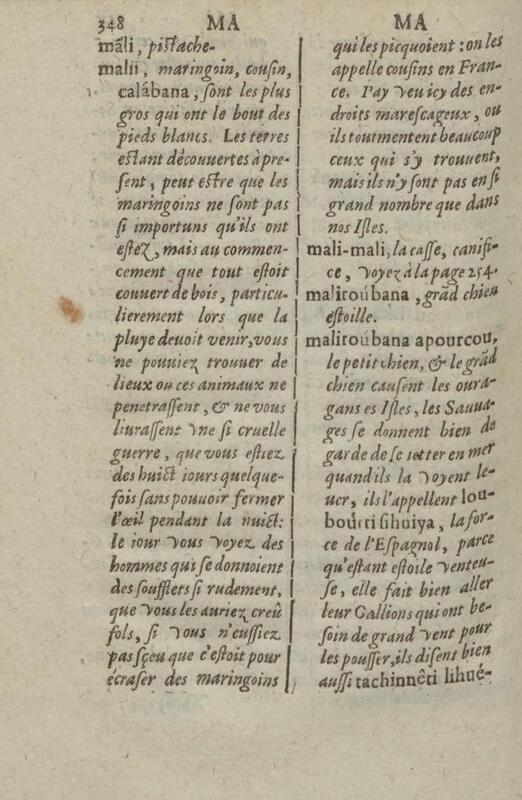 348 MA MA
mãli, pistache-
malii, maringoin, cousin,
calábana, sont les plus
gros qui ont le bout des
pieds blancs. Les terres
estant découuertes à pre-
sent, peut estre que les
maringoins ne sont pas
si importuns qu'ils ont
estez, mais au commen-
cement que tout estoit
couuert de bois, particu-
lierement lors que la
pluye deuoit venir, vous
ne pouuiez trouuer de
lieux ou ces animaux ne
penetrassent, & ne vous
liurassent vne si cruelle
guerre, que vous estiez
des huict iours quelque-
fois sans pouuoir fermer
l'œil pendant la nuict:
le iour vous voyez des
hommes qui se donnoient
des soufflets si rudement,
que vous les auriez creû
fols, si vous n'eussiez
pas sçeu que c'estoit pour
écraser des maringoins
qui les picquoient: on les
appelle cousins en Fran-
ce. I'ay veu icy des en-
droits marescageux, ou
ils tourmentent beaucoup
ceux qui s'y trouuent,
mais ils n'y sont pas en si
grand nombre que dans
nos Isles.
mali-mali, la casse, canifi-
ce, voyez à la page 254.
maliroúbana, grãd chien
estoille.
maliroúbana apourcou,
le petit chien, & le grãd
chien causent les oura-
gans es Isles, les Sauua-
ges se donnent bien de
garde de se ietter en mer
quand ils la voyent le-
uer, ils l'appellent lou-
boúrri sihuiya, la for-
ce de l'Espagnol, parce
qu'estant estoile venteu-
se, elle fait bien aller
leur Gallions qui ont be-
soin de grand vent pour
les pousser, ils disent bien
aussi tachinnêti lihué-